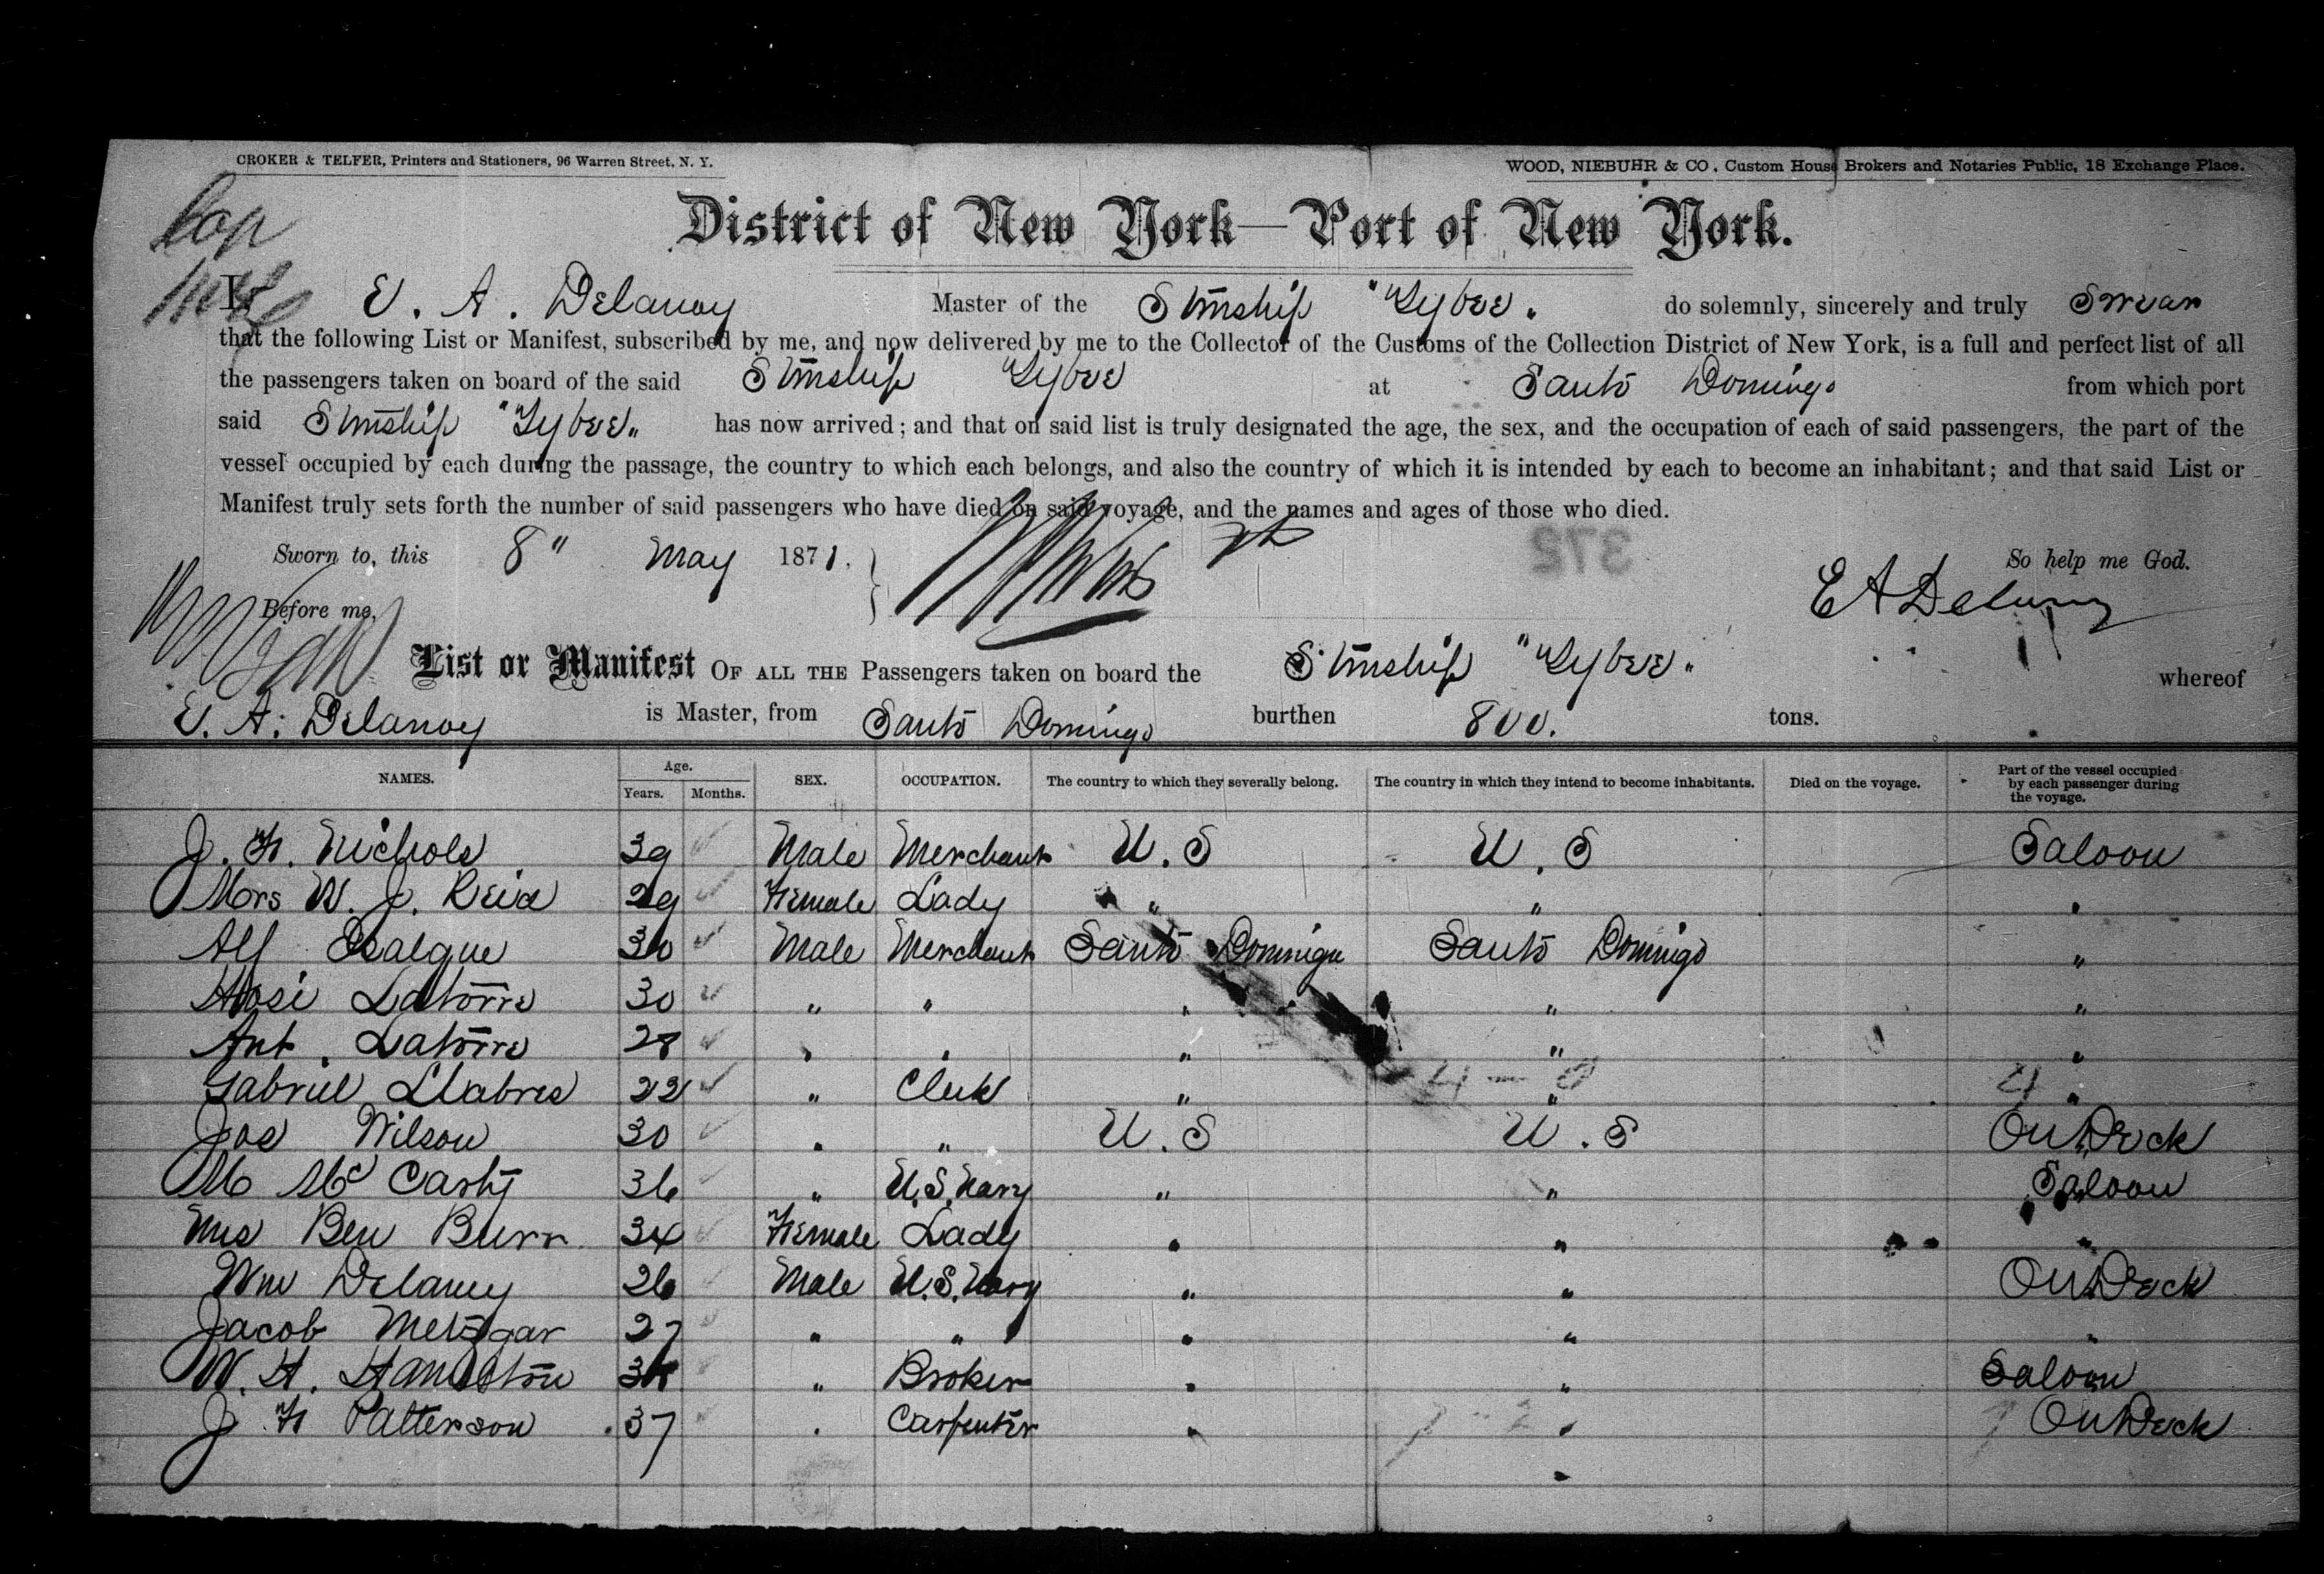 CROKER & TELFER, Printers and Stationers, 96 Warren Street, N. Y.
WOOD, NIEBUHR & CO, Custom House Brokers and Notaries Public, 18 Exchange Place.
District of New York—Port of New York.
I, E. A. Delanoy Master of the Stmship "Tybee. do solemnly, sincerely and truly swear
that the following List or Manifest, subscribed by me, and now delivered by me to the Collector of the Customs of the Collection District of New York, is a full and perfect list of all
the passengers taken on board of the said Stmship Tybee at Santo Domingo from which port
said Stmship "Tybee" has now arrived; and that on said list is truly designated the age, the sex, and the occupation of each of said passengers, the part of the
vessel occupied by each during the passage, the country to which each belongs, and also the country of which it is intended by each to become an inhabitant; and that said List or
Manifest truly sets forth the number of said passengers who have died on said voyage, and the names and ages of those who died.
Sworn to, this 8" May 1871. 372 So help me God.
Before me, E A Delanoy
List or Manifest OF ALL THE Passengers taken on board the Stmship "Tybee" whereof
E. A. Delanoy is Master, from Santo Domingo burthen 800. tons.
NAMES. Age. Years. Months. SEX. OCCUPATION. The country to which they severally belong. The country in which they intend to become inhabitants. Died on the voyage. Part of the vessel occupied by each passenger during the voyage.
J. F. Nichols 39 Male Merchant U. S U. S Saloon
Mrs W. J. Reid 29 Female Lady " " "
Alf 30 Male Merchant Santo Domingo Santo Domingo "
Latorre 30 " " " " "
Ant. Latorre 28 " " " " "
Gabriel Llabres 22 " Clerk " " "
Jos Wilson 30 " " U. S U. S On Deck
M Mc Carty 36 " U.S. Navy " " Saloon
Mrs Ben Burr 34 Female Lady " " "
Wm Delaney 26 Male U.S. Navy " " On Deck
Jacob Metzgar 27 " " " " "
W. H. " Broker " " Saloon
J F Patterson 37 " Carpenter " " On Deck